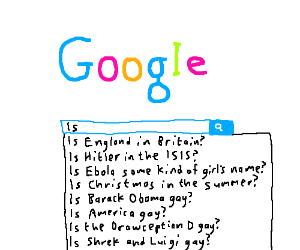 Google
Is
Is England in Britain?
Is Hitler in the ISIS?
Is Ebola some kind of girl's name?
Is Christmas in the summer?
Is Barack Obama gay?
Is America gay?
Is the Drawception D gay?
Is Shrek and Luigi gay?